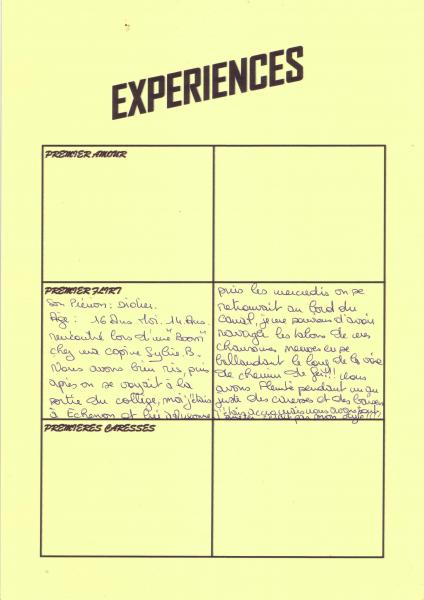 EXPERIENCES
PREMIER AMOUR
PREMIER FLIRT
Son Prénom : Didier.
Age : 16 Ans Moi : 14 Ans.
rencontré lors d'une "Boom"
chez ma copine Sylvie. B.
Nous avons bien ris, puis
après on se voyait à la
sortie du collège, moi j'étais
à Echenon et lui à
puis les mercredis on se
retrouvait au bord du
Canal, je me souviens d'avoir
ravagé les talons de mes
chaussures neuves en se
balladant le long de la voie
de chemin de fer!!! Nous
avons flirté pendant un an
juste des caresses et des baisers
j'étais accro mais nous avons
pas mon style!!!!
PREMIERES CARESSES